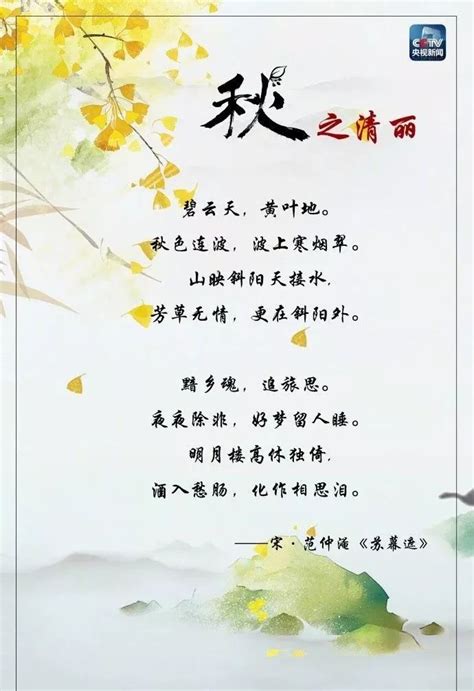 CCTV
央视新闻
秋之清丽
碧云天，黄叶地。
秋色连波，波上寒烟翠。
山映斜阳天接水，
芳草无情，更在斜阳外。
黯乡魂，追旅思。
夜夜除非，好梦留人睡。
明月楼高休独倚，
酒入愁肠，化作相思泪。
——宋·范仲淹《苏幕遮》